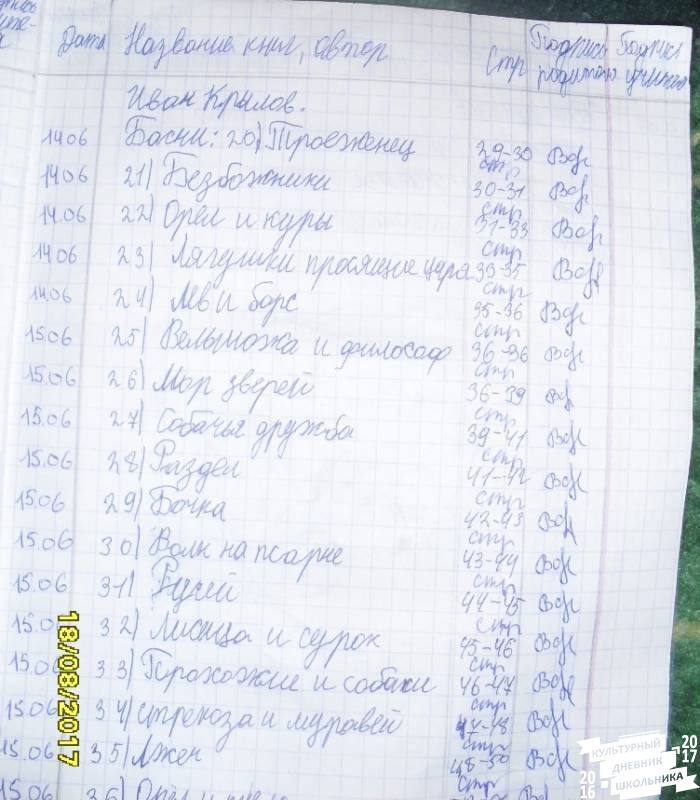 Дата Название книг, автор Стр Подпись родителя Подпись учителя
Иван Крылов.
14.06 Басни: 20) Троеженец 29-30 стр
14.06 21) Безбожники 30-31 стр
14.06 22) Орел и куры 31-33 стр
14.06 23) Лягушки просящие царя 33-35 стр
14.06 24) Лев и барс 35-36 стр
15.06 25) Вельможа и философ 36-36 стр
15.06 26) Мор зверей 36-39 стр
15.06 27) Собачья дружба 39-41 стр
15.06 28) Раздел 41-42 стр
15.06 29) Бочка 42-43 стр
15.06 30) Волк на псарне 43-44 стр
15.06 31) Ручей 44-45 стр
15.0 32) Лисица и сурок 45-46 стр
15.06 33) Прохожие и собаки 46-47 стр
15.06 34) стрекоза и муравей 47-48 стр
15.06 35) Лжец 48-50 стр
15.06 36) Орел и
18/08/2017
КУЛЬТУРНЫЙ
ДНЕВНИК
ШКОЛЬНИКА
2016
2017